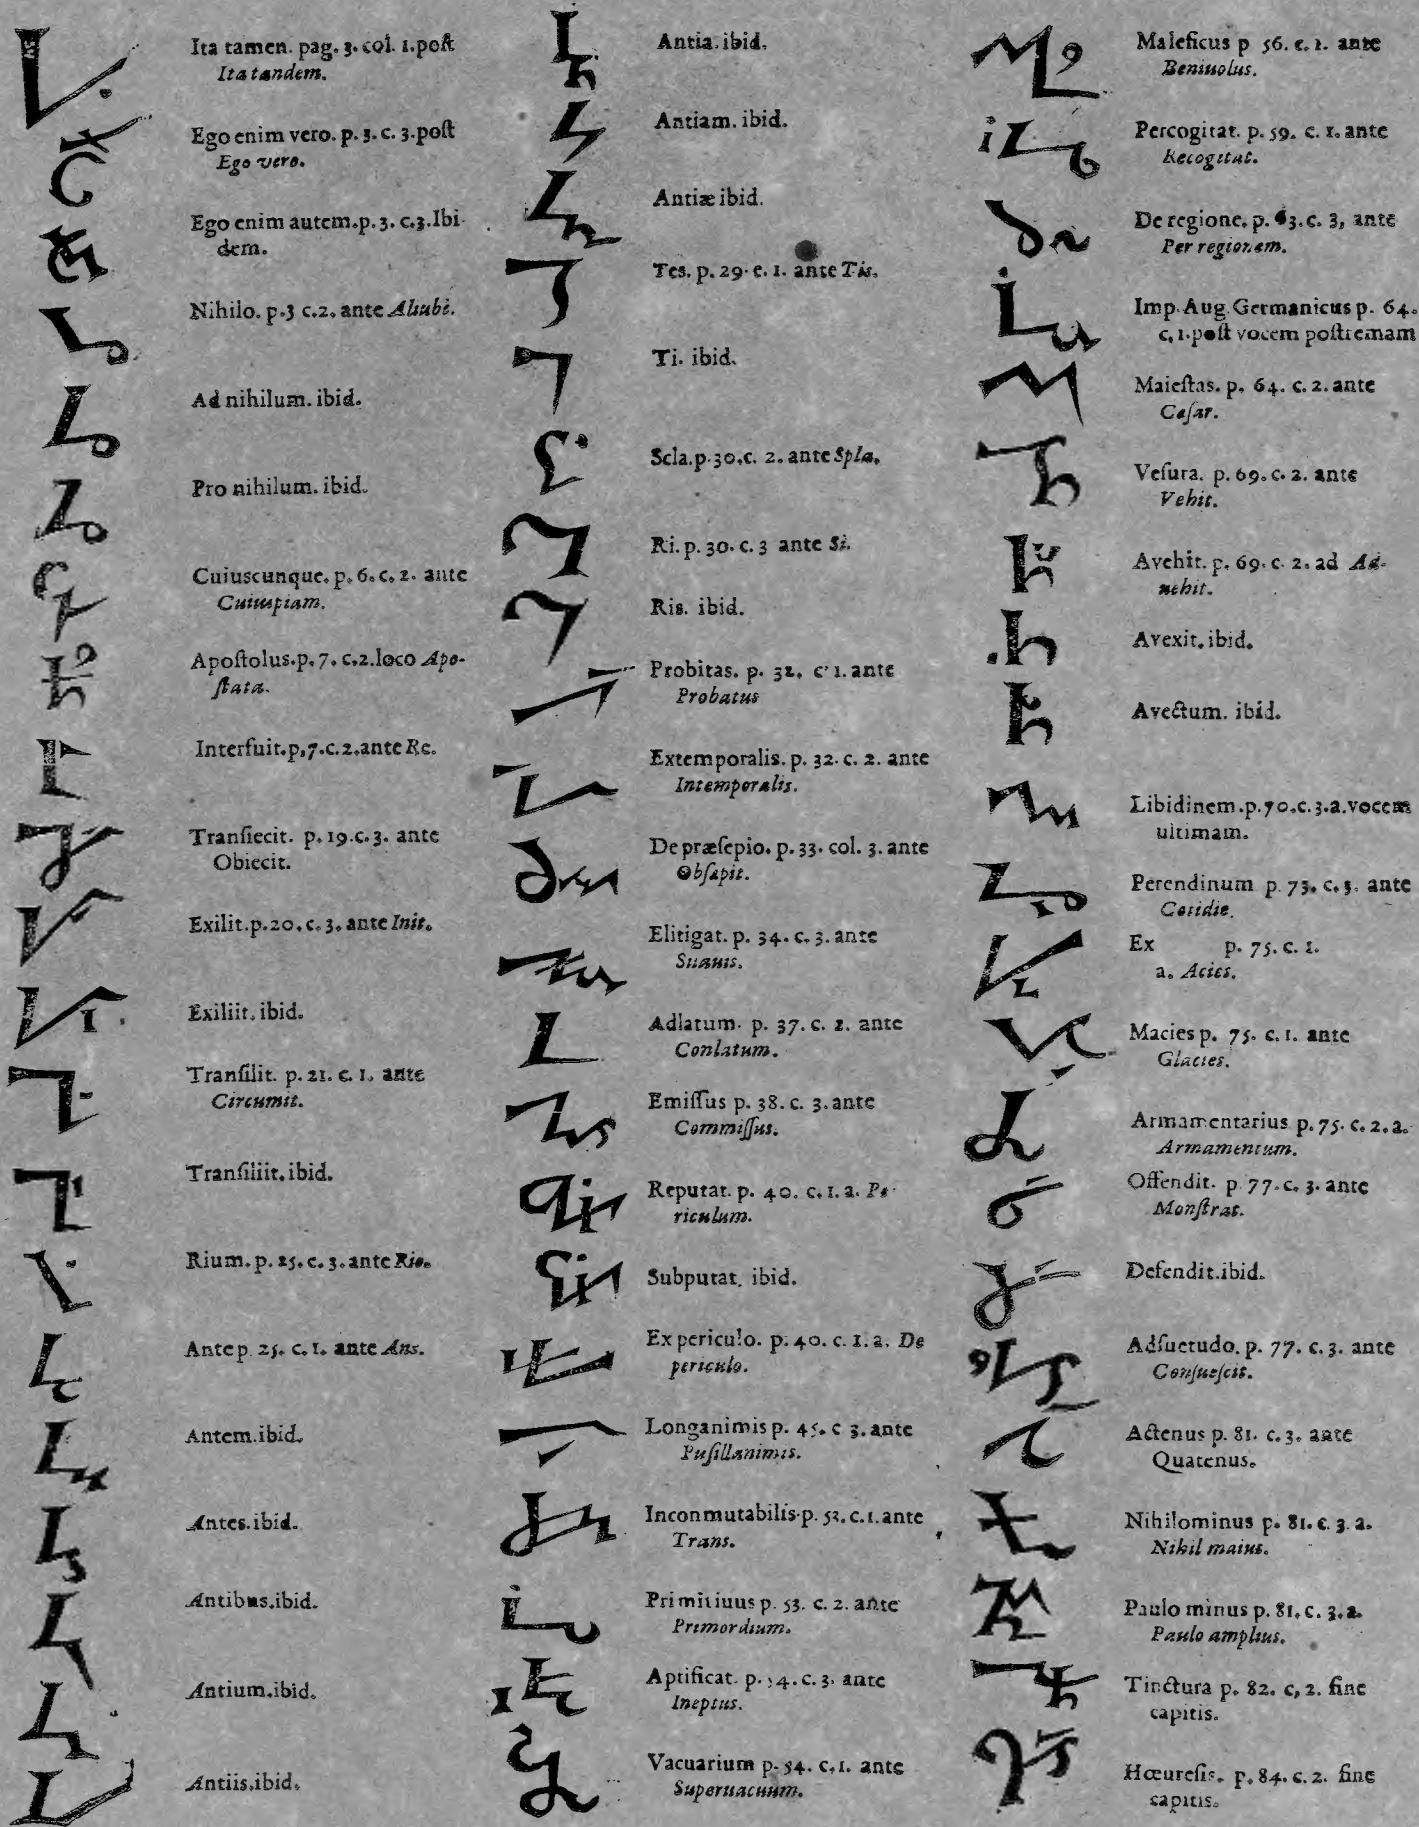 Ita tamen. pag. 3. col. 1. poſt
Ita tandem.
Ego enim vero. p. 3. c. 3. poſt
Ego vero.
Ego enim autem. p. 3. c. 3. Ibi
dem.
Nihilo. p. 3 c. 2. ante Aliubi.
Ad nihilum. ibid.
Pro nihilum. ibid.
Cuiuscunque. p. 6. c. 2. ante
Cuiuspiam.
Apoſtolus. p. 7. c. 2. loco Apo-
ſtata.
Interfuit. p. 7. c. 2. ante Re.
Tranſiecit. p. 19. c. 3. ante
Obiecit.
Exilit. p. 20. c. 3. ante Init.
Exiliit. ibid.
Tranſilit. p. 21. c. 1. ante
Circumit.
Tranſiliit. ibid.
Rium. p. 25. c. 3. ante Rio.
Ante p. 25. c. 1. ante Ans.
Antem. ibid.
Antes. ibid.
Antibus. ibid.
Antium. ibid.
Antiis. ibid.
Antia. ibid.
Antiam. ibid.
Antiæ ibid.
Tes. p. 29. c. 1. ante Tis.
Ti. ibid.
Scla. p. 30. c. 2. ante Spla.
Ri. p. 30. c. 3 ante Si.
Ris. ibid.
Probitas. p. 32. c. 1. ante
Probatus
Extemporalis. p. 32. c. 2. ante
Intemporalis.
De præſepio. p. 33. col. 3. ante
Obſæpit.
Elitigat. p. 34. c. 3. ante
Suauis.
Adlatum. p. 37. c. 2. ante
Conlatum.
Emiſſus p. 38. c. 3. ante
Commiſſus.
Reputat. p. 40. c. 1. a. Pe-
riculum.
Subputat. ibid.
Ex periculo. p. 40. c. 1. a. De
periculo.
Longanimis p. 45. c 3. ante
Puſillanimis.
Inconmutabilis. p. 52. c. 1. ante
Trans.
Primitiuus p. 53. c. 2. ante
Primordium.
Aptificat. p. 4. c. 3. ante
Ineptus.
Vacuarium p. 54. c. 1. ante
Superuacuum.
Maleficus p 56. c. 1. ante
Beniuolus.
Percogitat. p. 59. c. 1. ante
Recogitat.
De regione. p. 63. c. 3, ante
Per regionem.
Imp. Aug. Germanicus p. 64.
c, 1. poſt vocem poſtremam
Maieſtas. p. 64. c. 2. ante
Cæſar.
Veſura. p. 69. c. 2. ante
Vehit.
Avehit. p. 69. c. 2. ad Ad-
uehit.
Avexit. ibid.
Avectum. ibid.
Libidinem. p. 70. c. 3. a. vocem
ultimam.
Perendinum p. 73. c. 3. ante
Cotidie.
Ex p. 75. c. 1.
a. Acies.
Macies p. 75. c. 1. ante
Glacies.
Armamentarius p. 75. c. 2. a.
Armamentum.
Offendit. p. 77. c. 3. ante
Monſtrat.
Defendit. ibid.
Adſuetudo. p. 77. c. 3. ante
Conſueſcit.
Actenus p. 81. c. 3. ante
Quatenus.
Nihilominus p. 81. c. 3. a.
Nihil maius.
Paulo minus p. 81. c. 3. a.
Paulo amplius.
Tinctura p. 82. c, 2. fine
capitis.
Hœureſis. p. 84. c. 2. fine
capitis.